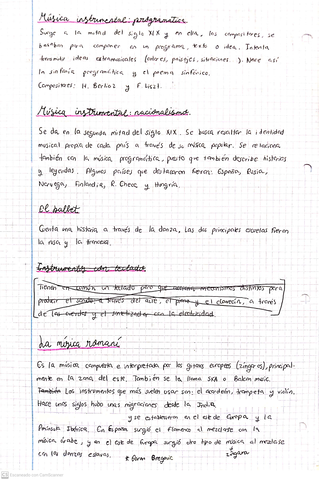 Música instrumental: programática
Surge a la mitad del siglo XIX y en ella, los compositores, se
basaban para componer en un programa, texto o idea. Intenta
transmitir ideas extramusicales (colores, paisajes, situaciones...). Nace así
la sinfonía programática y el poema sinfónico.
Compositores: H. Berlioz y F. Liszt.
Música instrumental: nacionalismo.
Se da en la segunda mitad del siglo XIX. Se busca resaltar la identidad
musical propia de cada país a través de su música popular. Se relaciona
también con la música programática, puesto que también describe historias
y leyendas. Algunos países que destacaron fueron: España, Rusia,
Noruega, Finlandia, R. Checa y Hungría.
El ballet
Cuenta una historia a través de la danza. Las dos principales escuelas fueron
la rusa y la francesa.
Instrumentos con teclado
Tienen en común un teclado pero que accionan mecanismos distintos para
producir el sonido: a través del aire, el piano y el clavecín, a través
de las cuerdas y el sintetizador con la electricidad
La música romaní
Es la música compuesta e interpretada por los gitanos europeos (zíngaros), principal-
mente en la zona del este. También se la llama
También Los instrumentos que más suelen usar son: el acordeón, trompeta y violín.
Hace unos siglos hubo unas migraciones desde la India
y se establecieron en el este de Europa y la
Península Ibérica. En España surgió el flamenco al mezclarse con la
música árabe, y en el este de Europa surgió otro tipo de música al mezclarse
con las danzas eslavas.
* Goran Bregovic
zíngara